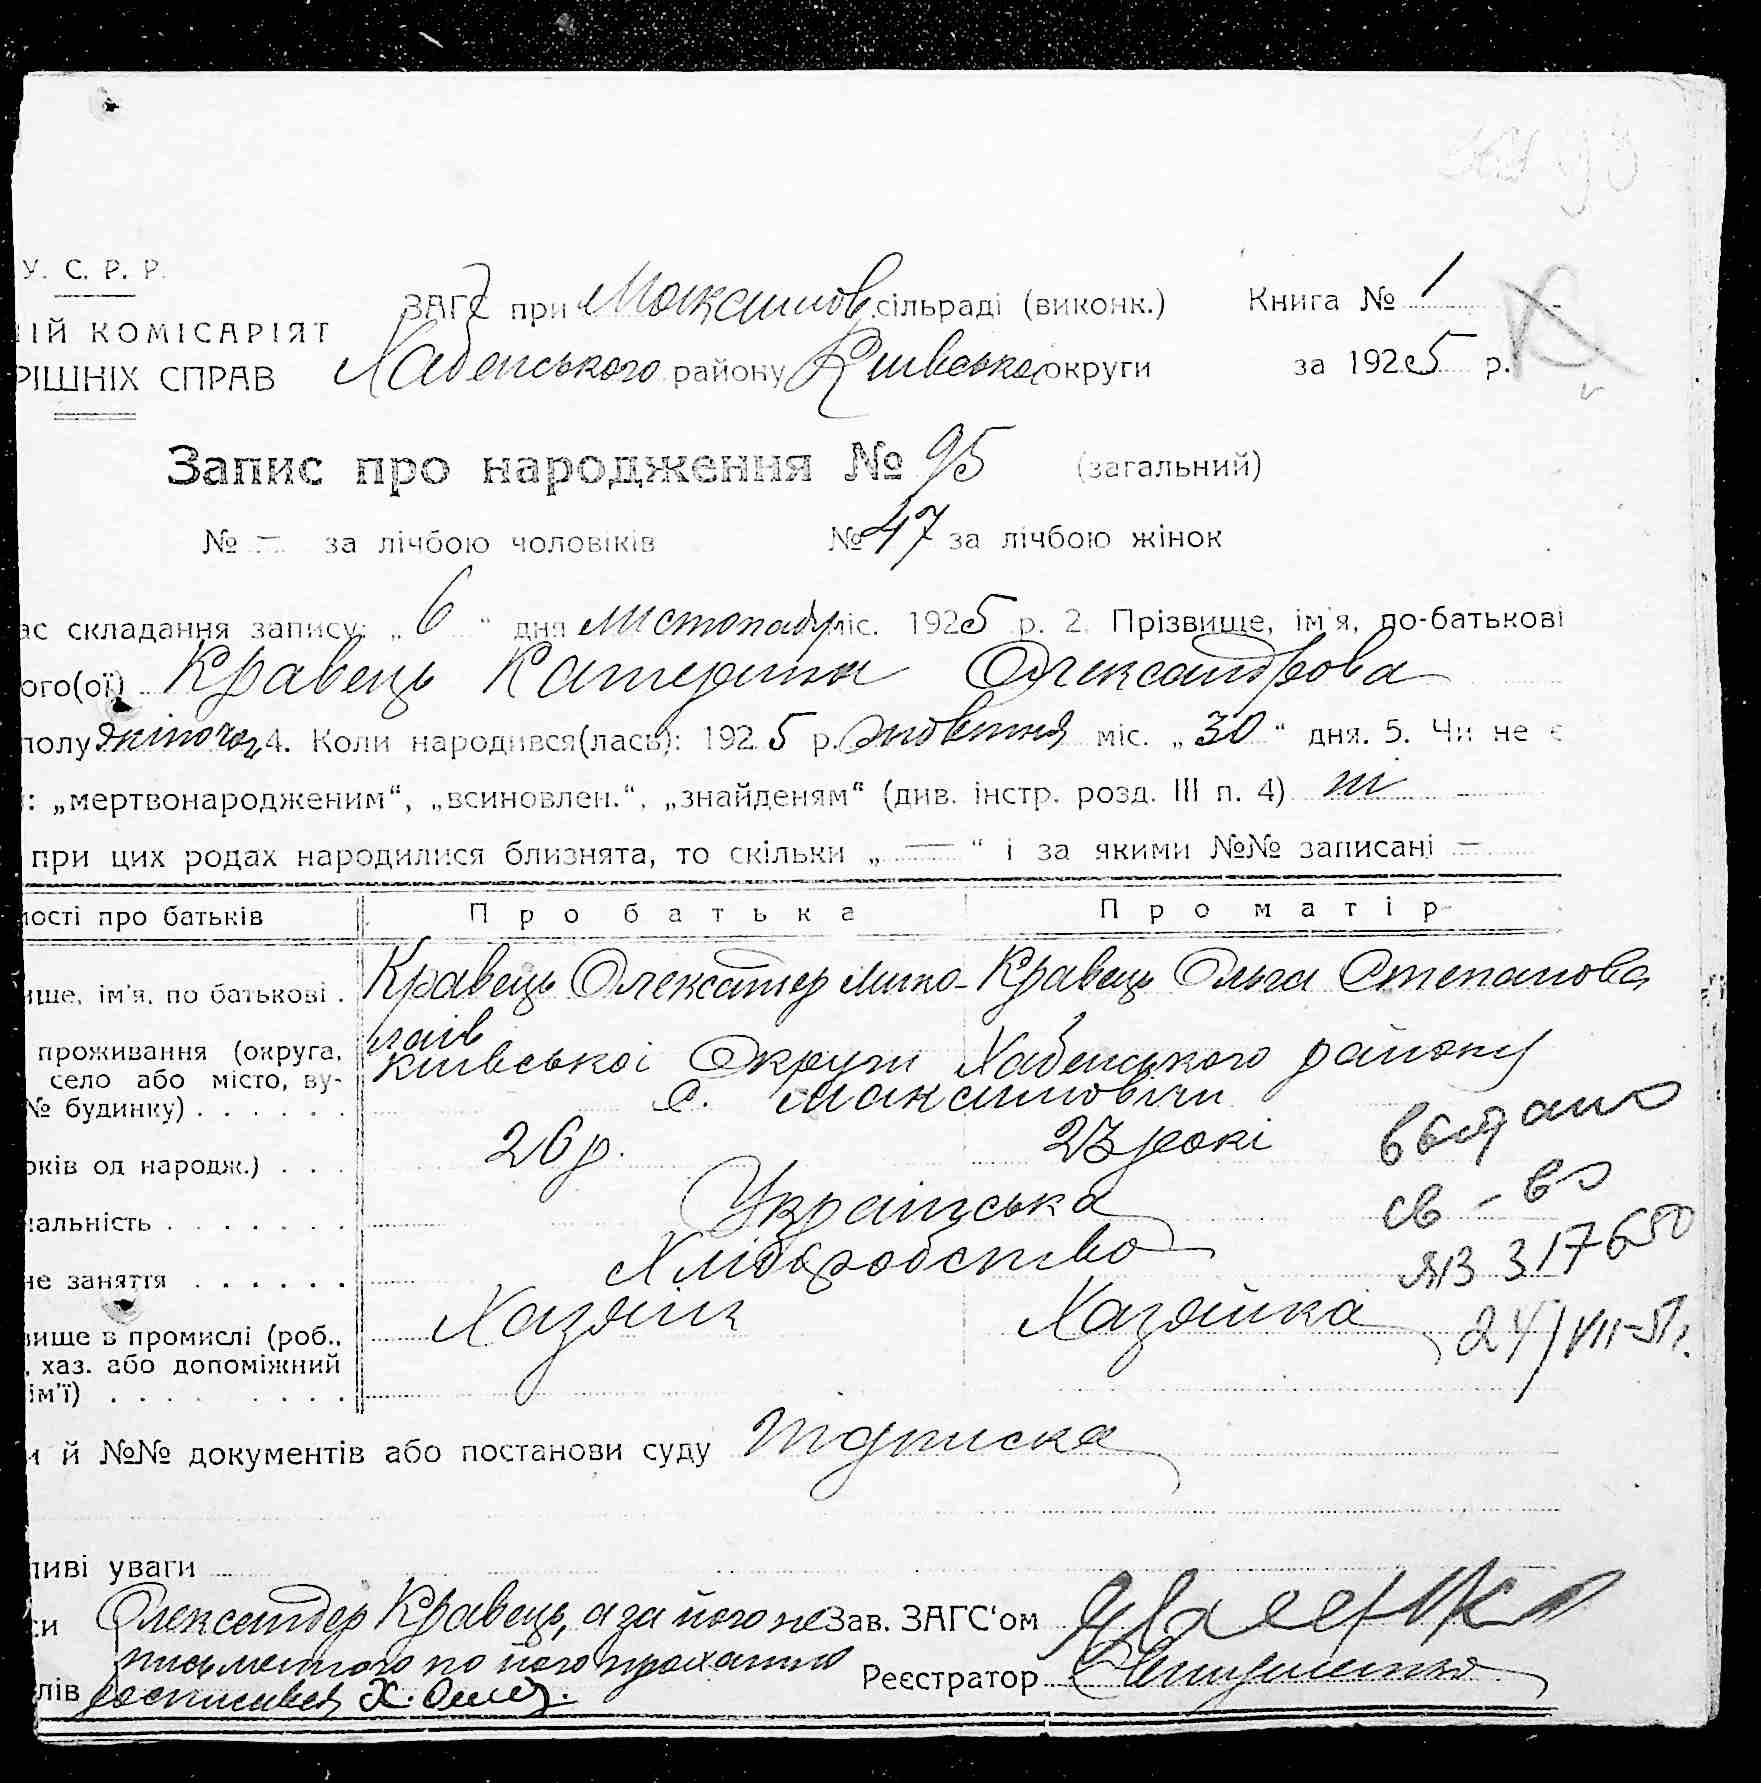 У. С. Р. Р.
ІЙ КОМІСАРІЯТ
РІШНІХ СПРАВ
ЗАГС при Максимов. сільраді (виконк.) Книга № 1
Хабенського району Київської округи за 1925 р.
Запис про народження № 95 (загальний)
№ — за лічбою чоловіків № 47 за лічбою жінок
ас складання запису: „6“ дня листопаду міс. 1925 р. 2. Прізвище, ім'я, по-батькові
ого(ої) Кравець Катерина Олександрова
полу жіночог 4. Коли народився(лась): 1925 р. жовтня міс. „30“ дня. 5. Чи не є
: „мертвонародженим“, „всиновлен.“, „знайденям“ (див. інстр. розд. III п. 4) ні
при цих родах народилися близнята, то скільки „—“ і за якими №№ записані —
ності про батьків Про батька Про матір
ище, ім'я, по батькові . Кравець Олександер Мико- Кравець Ольга Степанова
лаїв
проживання (округа, Київської Округи Хабенського району
село або місто, ву- с. Максимовичи
№ будинку) . . . . . .
оків од народж.) . . . 26 р. 23 рокі
альність . . . . . . . Українська
не заняття . . . . . . Хліборобство
вище в промислі (роб., Хазяїн Хазяйка
. хаз. або допоміжний
ім'ї) . . . . . . . .
выдано
св-во
ЯВ 317650
24/VII-51г.
и й №№ документів або постанови суду Підписка
ливі уваги
си Олександер Кравець, а за його не Зав. ЗАГС'ом
письменного по його проханню Реєстратор
лів росписався Х.